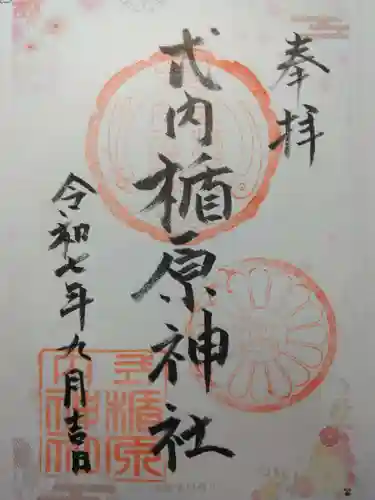 奉拝
式内楯原神社
令和七年九月吉日